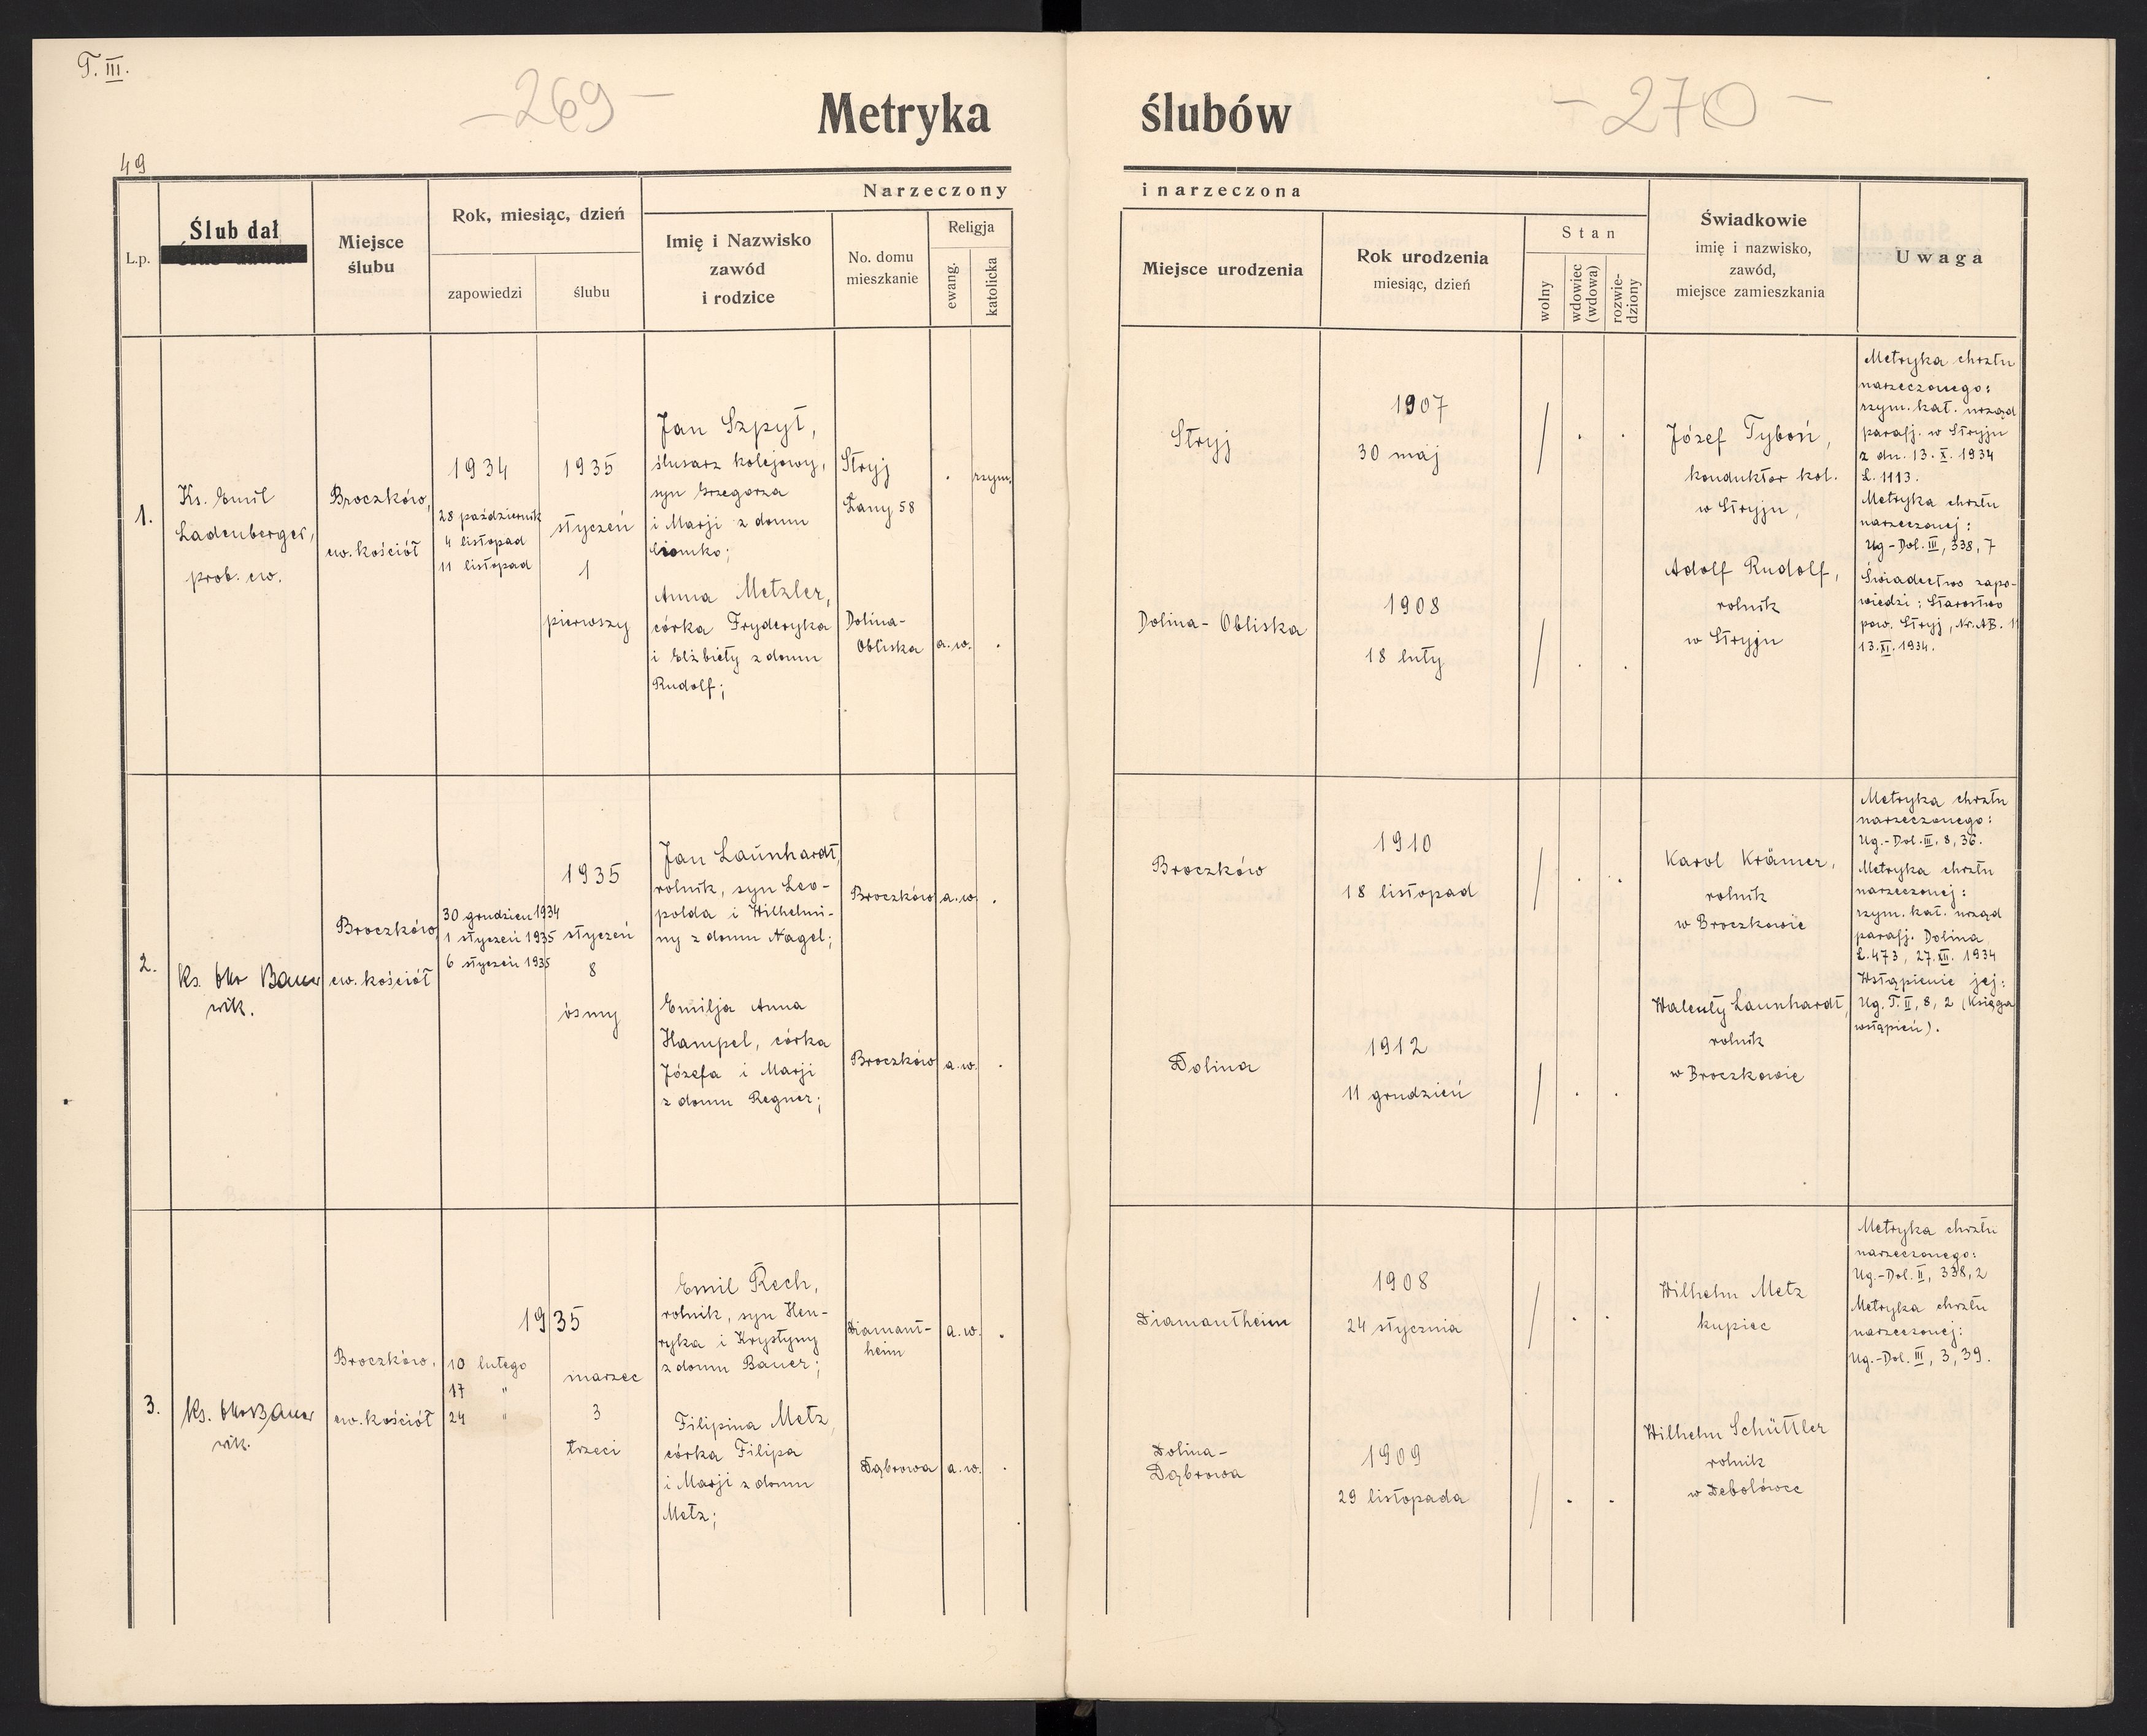 T. III.
- 269 -
- 270 -
Metryka
ślubów
49
L.p.
Ślub dał
Miejsce
ślubu
Rok, miesiąc, dzień
zapowiedzi
ślubu
Narzeczony
Imię i Nazwisko
zawód
i rodzice
No. domu
mieszkanie
Religja
ewang.
katolicka
i narzeczona
Miejsce urodzenia
Rok urodzenia
miesiąc, dzień
Stan
wolny
wdowiec
(wdowa)
rozwie-
dziony
Świadkowie
imię i nazwisko,
zawód,
miejsce zamieszkania
Uwaga
1.
Ks. Emil
Ladenberger,
prob. ew.
Broczków,
ew. kościół
1934
28 październik
4 listopad
11 listopad
1935
styczeń
1
pierwszy
Jan Szpyt,
ślusarz kolejowy,
syn Grzegorza
i Marji z domu
Anna Metzler,
córka Fryderyka
i Elżbiety z domu
Rudolf;
Stryj
Łany 58
. rzym.
Dolina-
Obliska
a.w. .
Stryj
1907
30 maj
/ . .
Dolina-Obliska
1908
18 luty
/ . .
Józef Tyboń,
konduktor kol.
w Stryju,
Adolf Rudolf,
rolnik
w Stryju
Metryka chrztu
narzeczonego:
rzym. kat. urząd
parafj. w Stryju
z dn. 13. X. 1934
L. 1113.
Metryka chrztu
narzeczonej:
Ug-Dol. III, 338, 7
Świadectwo zapo-
wiedzi: Starostwo
pow. Stryj, Nr. AB. 11
13. XI. 1934.
2.
Ks. Otto Bauer
wik.
Broczków
ew. kościół
30 grudzień 1934
1 styczeń 1935
6 styczeń 1935
1935
styczeń
8
ósmy
Jan Launhardt,
rolnik, syn Leo-
polda i Wilhelmi-
ny z domu Nagel;
Emilja Anna
Hampel, córka
Józefa i Marji
z domu Regner;
Broczków
a.w. .
Broczków
a.w. .
Broczków
1910
18 listopad
/ . .
Dolina
1912
11 grudzień
/ . .
Karol Krämer,
rolnik
w Broczkowie
Walenty Launhardt,
rolnik
w Broczkowie
Metryka chrztu
narzeczonego:
Ug.-Dol. III, 8, 36.
Metryka chrztu
narzeczonej:
rzym. kat. urząd
parafj. Dolina
L. 473, 27. XII. 1934
Wstąpienie jej:
Ug. T. II, 8, 2 (Księga
wstąpień).
3.
Ks. Otto Bauer
wik.
Broczków,
ew. kościół
1935
10 lutego
17 "
24 "
marzec
3
trzeci
Emil Rech,
rolnik, syn Hen-
ryka i Krystyny
z domu Bauer;
Filipina Metz,
córka Filipa
i Marji z domu
Metz;
Diamant-
heim
a.w. .
Dąbrowa
a.w. .
Diamantheim
1908
24 stycznia
/ . .
Dolina-
Dąbrowa
1909
29 listopada
/ . .
Wilhelm Metz
kupiec
Wilhelm Schüttler
rolnik
w Debolówce
Metryka chrztu
narzeczonego:
Ug.-Dol. II, 338, 2
Metryka chrztu
narzeczonej:
Ug.-Dol. III, 3, 39.